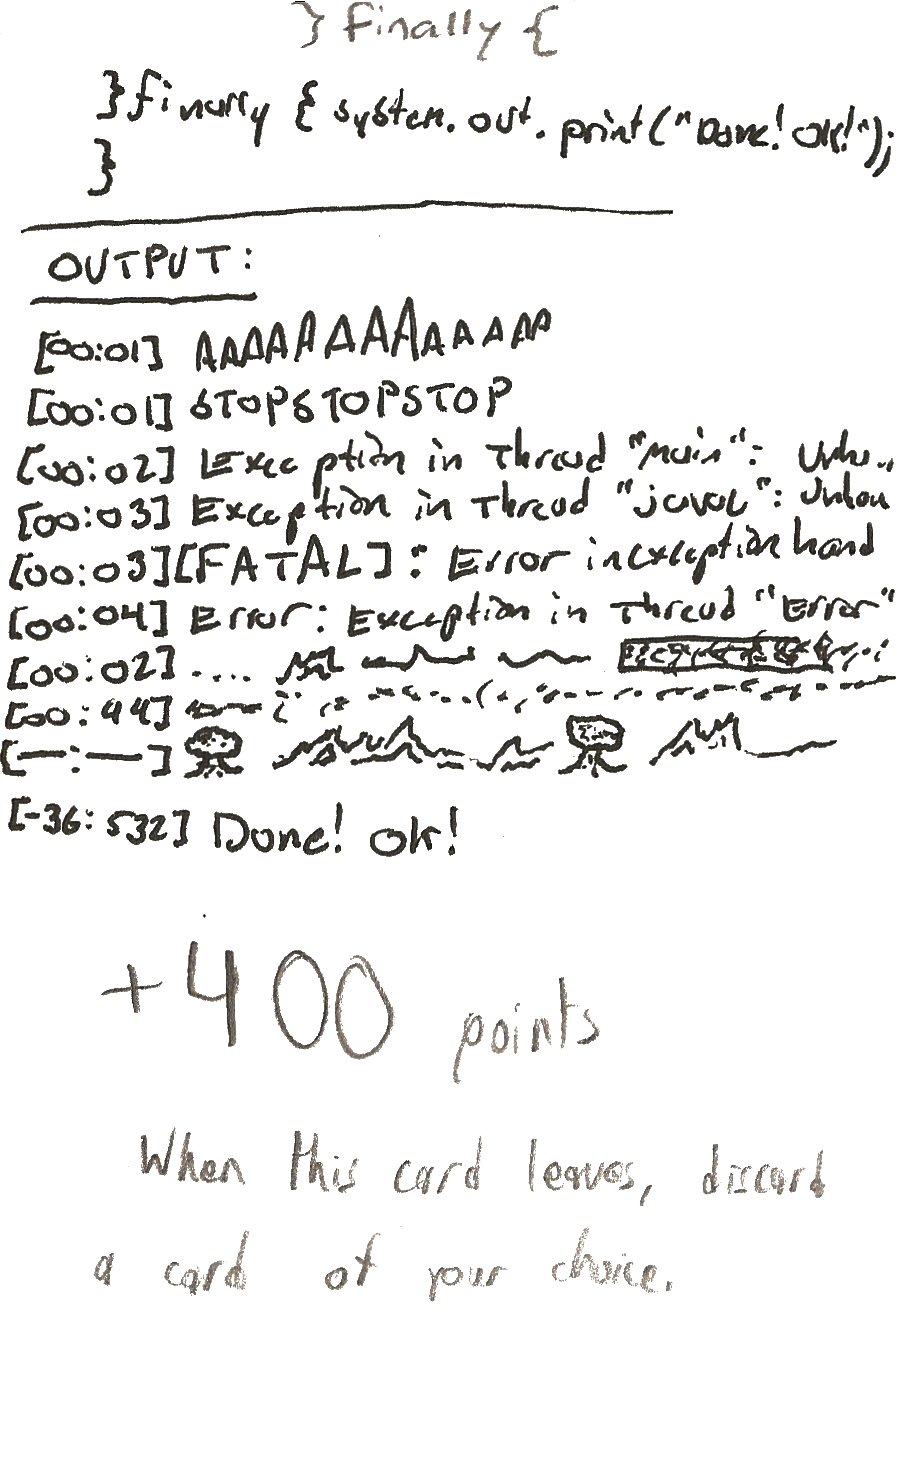 } finally {
} finally { system.out.print("Done! OK!");
}
OUTPUT:
[00:01] AAAAAAAAAAAAAA
[00:01] STOPSTOPSTOP
[00:02] Exception in Thread "main": Unho..
[00:03] Exception in Thread "java": Unhan
[00:03][FATAL]: Error in exception hand
[00:04] Error: Exception in Thread "Error"
[00:02]....
[00:44]
[—:—]
[-36:532] Done! OK!
+400 points
When this card leaves, discard
a card of your choice.